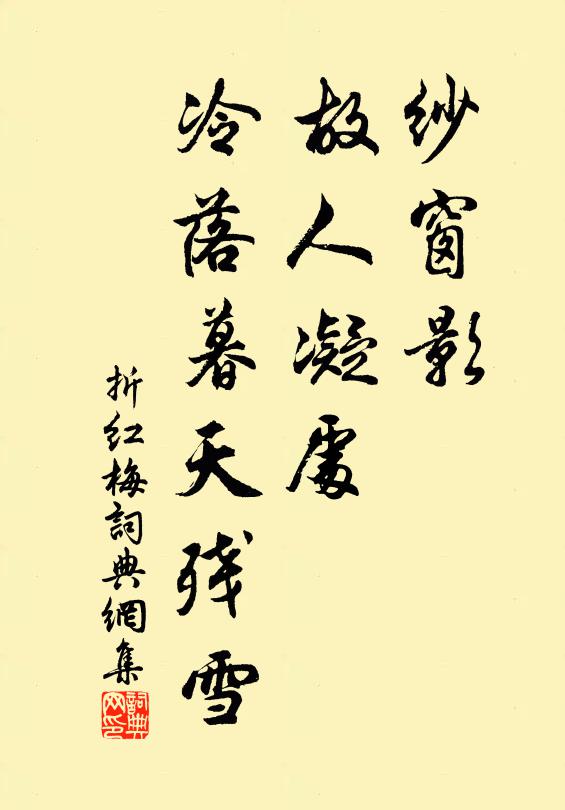 紗窗影
故人凝處
冷落暮天残雪
折红梅詞典網集
詞典網印